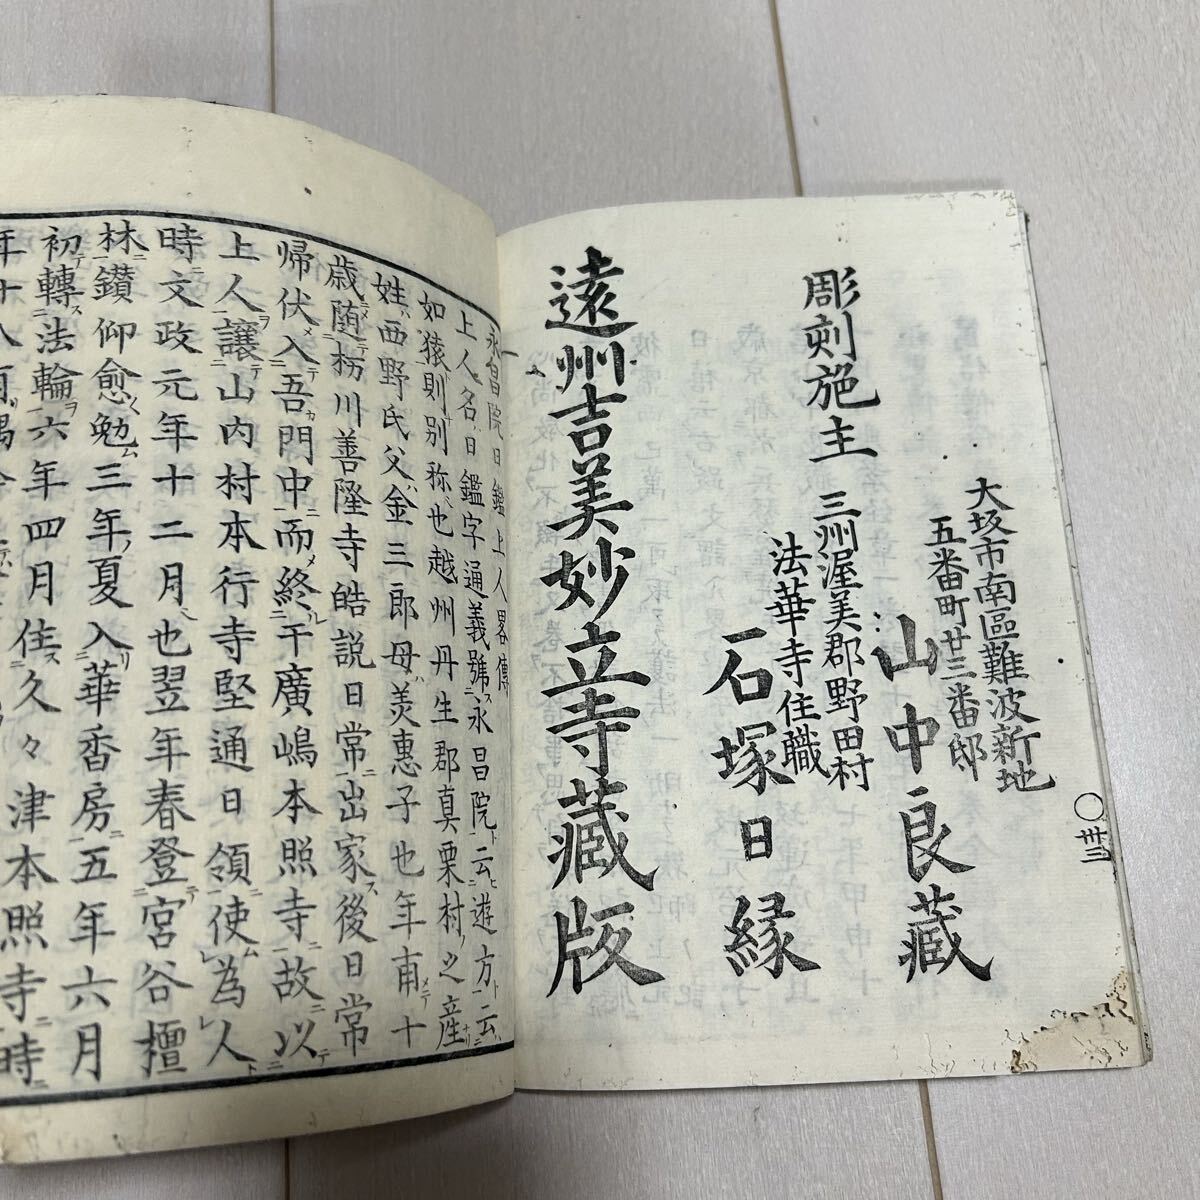 彫刻施主
大坂市南區難波新地
五番町廿三番邸
山中良藏
三州渥美郡野田村
法華寺住職
石塚日縁
遠州吉美妙立寺藏版
〇 卅三
永昌院日鑑上人畧傳
上人名日鑑字通義號ス永昌院ト云ヒ遊方ト云
如猿則別称也越州丹生郡真栗村ノ之産ナリ
姓ハ西野氏父ハ金三郎母ハ美惠子也年甫メテ十
歳随テ栃川善隆寺皓説日常ニ出家ス後日常
帰伏メ入テ吾カ門中ニ而メ終ル于廣嶋本照寺ニ故ニ以テ
上人ヲ讓テ山内村本行寺堅通日領ニ使ム為レ人ト
時ニ文政元年十二月也翌年春登テ宮谷檀
林ニ鑚仰愈〻勉ム三年ノ夏入リ華香房ニ五年六月
初テ轉ス法輪ヲ六年四月住ス久々津本照寺ニ時ニ